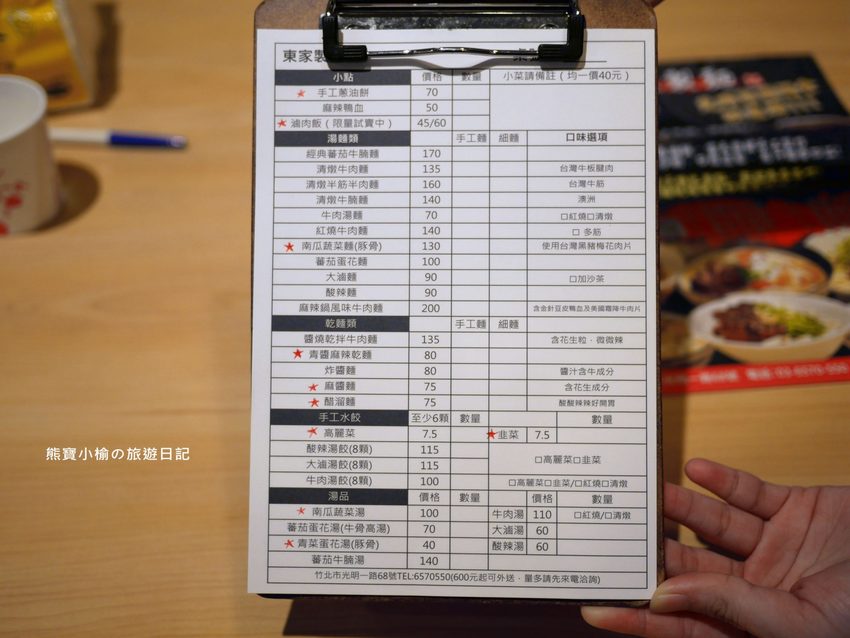 東家製
小點 價格 數量 小菜請備註(均一價40元)
★ 手工蔥油餅 70
麻辣鴨血 50
★ 滷肉飯(限量試賣中) 45/60
湯麵類 手工麵 細麵 口味選項
經典蕃茄牛腩麵 170
清燉牛肉麵 135 台灣牛板腱肉
清燉半筋半肉麵 160 台灣牛筋
清燉牛腩麵 140 澳洲
牛肉湯麵 70 □紅燒□清燉
紅燒牛肉麵 140 □ 多筋
★ 南瓜蔬菜麵(豚骨) 130 使用台灣黑豬梅花肉片
蕃茄蛋花麵 100
大滷麵 90 □加沙茶
酸辣麵 90
麻辣鍋風味牛肉麵 200 含金針豆皮鴨血及美國霜降牛肉片
乾麵類 手工麵 細麵
醬燒乾拌牛肉麵 135 含花生粒﹑微微辣
★ 青醬麻辣乾麵 80
炸醬麵 80 醬汁含牛成分
★ 麻醬麵 75 含花生成分
★ 醋溜麵 75 酸酸辣辣好開胃
手工水餃 至少6顆 數量 數量
★ 高麗菜 7.5 ★韭菜 7.5
酸辣湯餃(8顆) 115 □高麗菜□韭菜
大滷湯餃(8顆) 115
牛肉湯餃(8顆) 100 □高麗菜□韭菜/□紅燒□清燉
湯品 價格 數量 價格 數量
★ 南瓜蔬菜湯 100 牛肉湯 110 □紅燒/□清燉
蕃茄蛋花湯(牛骨高湯) 70 大滷湯 60
★ 青菜蛋花湯(豚骨) 40 酸辣湯 60
蕃茄牛腩湯 140
竹北市光明一路68號TEL:6570550(600元起可外送﹑量多請先來電洽詢)
熊寶小榆の旅遊日記